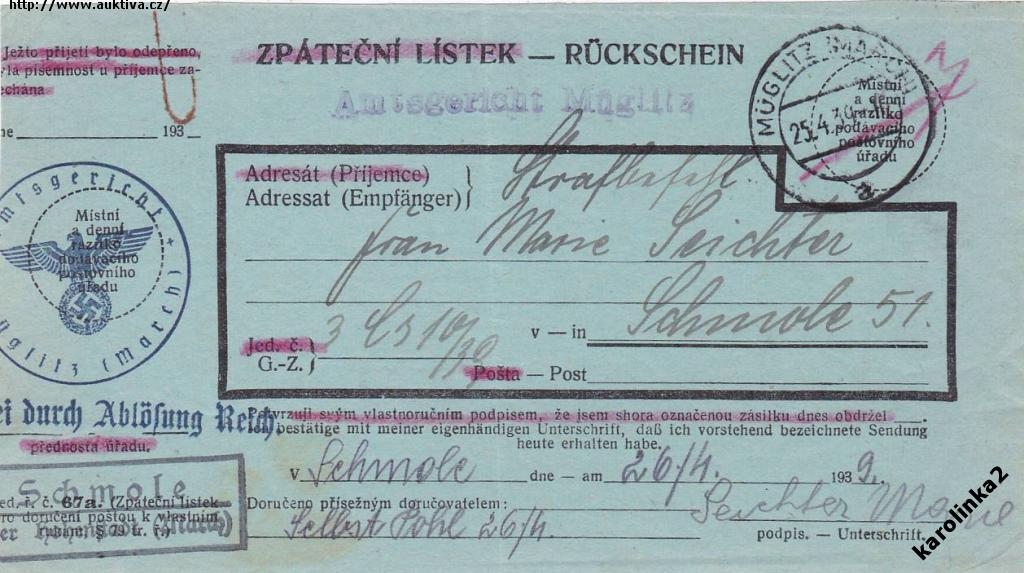 http://www.auktiva.cz/
Ježto přijetí bylo odepřeno,
yla písemnost u příjemce za-
echána
ne 193
ZPÁTEČNÍ LÍSTEK — RÜCKSCHEIN
Amtsgericht Müglitz
MÜGLITZ (MARCH)
25.4.39
a
Místní
a denní
razítko
podávacího
poštovního
úřadu
Adresát (Příjemce)
Adressat (Empfänger)
Strafbefehl
Frau Marie Seichter
v — in Schmole 51.
Jed. č.
G.-Z.
3 Cs 10/39
Pošta — Post
mtsgericht
üglitz (March)
Místní
a denní
razítko
dodávacího
poštovního
úřadu
ei durch Ablösung Reich.
přednosta úřadu.
Potvrzuji svým vlastnoručním podpisem, že jsem shora označenou zásilku dnes obdržel
bestätige mit meiner eigenhändigen Unterschrift, daß ich vorstehend bezeichnete Sendung
heute erhalten habe.
v Schmole dne — am 26/4. 1939.
Schmole
ed. ř. č. 67a. (Zpáteční lístek
ro doručení poštou k vlastním
rukám, § 79 tr. ř.)
(March)
Doručeno přísežným doručovatelem:
Selbst Pohl 26/4.
Seichter Marie
podpis. — Unterschrift.
karolinka2